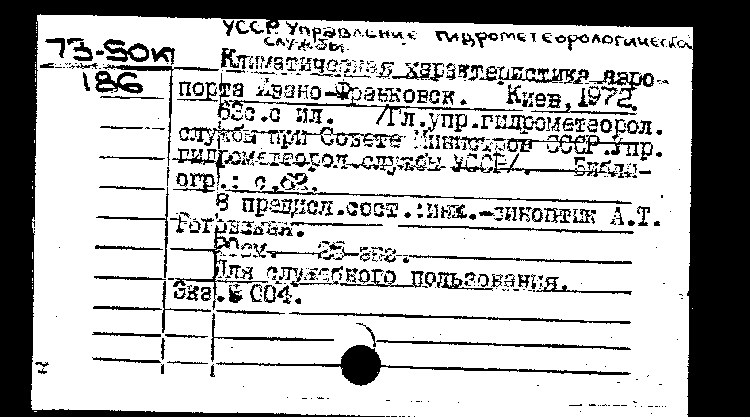 УССР. Управление гидрометеорологической
службы.
73-5ок
186
Климатическая характеристика аэро-
порта Ивано-Франковск. Киев, 1972.
63с. с ил. /Гл.упр.гидрометеорол.
службы при Совете Министров СССР.Упр.
гидрометеорол.службы УССР/. Библи-
огр.: с.62.
В предисл.сост.:инж.-синоптик А.Т.
20см. экз.
Для служебного пользования.
Экз.№ 004.